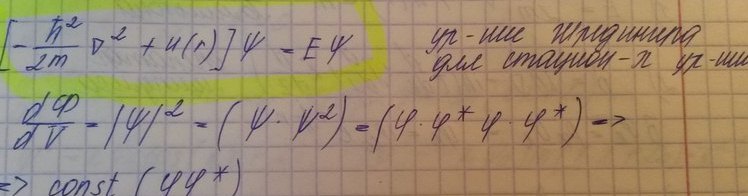 [-ħ²/2m ∇² + u(r)] ψ = E ψ ур-ние Шредингера
для стацион-х ур-ний
dФ/dV = |ψ|² = (ψ · ψ²) = (φ · φ* φ · φ*) =>
=> const (φφ*)